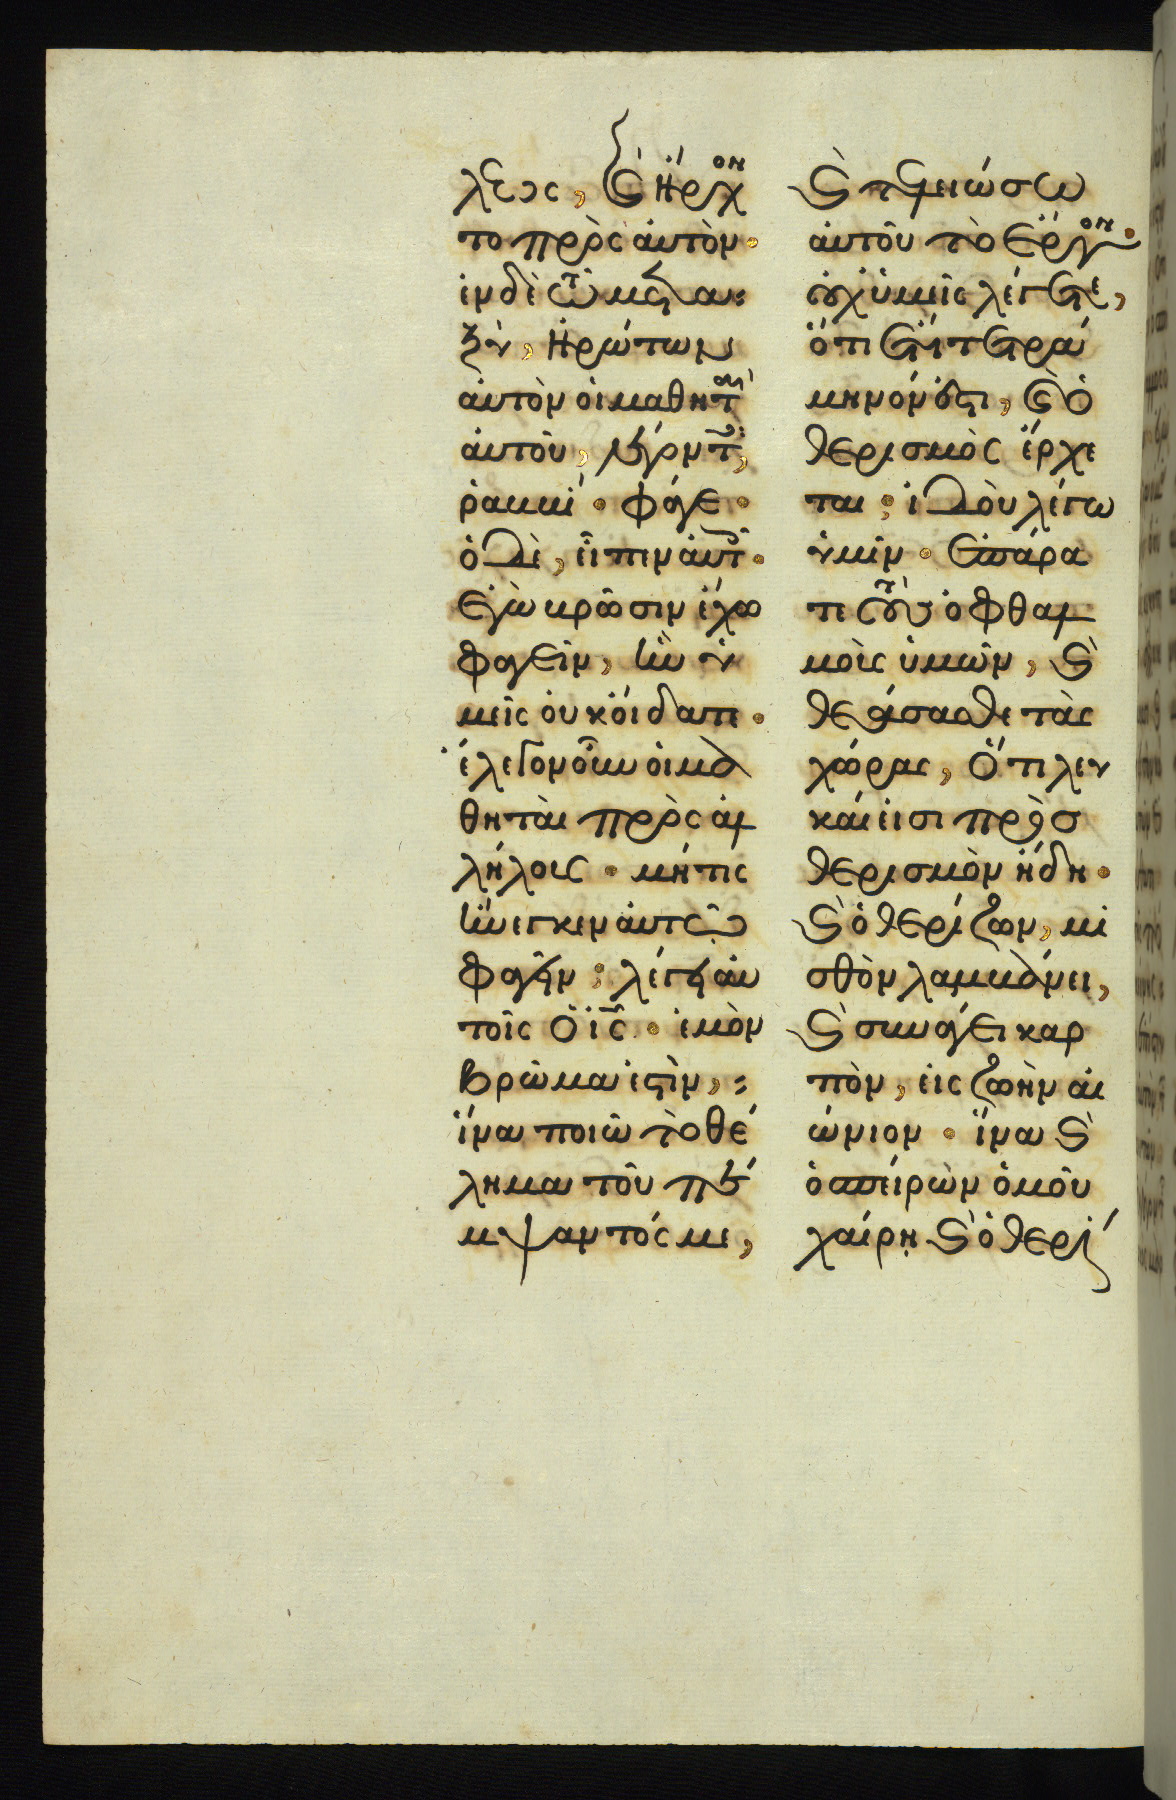 λεως, καὶ ἤρχον
το πρὸς αὐτὸν.
ἐν δὲ τῶ μετα
ξὺ, ἠρώτων
αὐτὸν οἱ μαθηταὶ
αὐτοῦ, λέγοντες,
ῥαββί. φάγε.
ὁ δὲ, εἶπεν αὐτοῖς.
ἐγὼ βρῶσιν ἔχω
φαγεῖν, ἣν ὑ
μεῖς οὐκ οἴδατε.
ἔλεγον οὖν οἱ μα
θηταὶ πρὸς ἀλ
λήλους. μήτις
ἤνεγκεν αὐτῶ
φαγεῖν; λέγει αὐ
τοῖς ὁ ἰς. ἐμὸν
βρῶμα ἐστὶν,
ἵνα ποιῶ τὸ θέ
λημα τοῦ πέ
μψαντός με,
καὶ τελειώσω
αὐτοῦ τὸ ἔργον.
οὐχ ὑμεῖς λέγετε,
ὅτι ἔτι τετρά
μηνόν ἐστι, καὶ ὁ
θερισμὸς ἔρχε
ται; ἰδοὺ λέγω
ὑμῖν. ἐπάρα
τε τοὺς ὀφθαλ
μοὺς ὑμῶν, καὶ
θεάσασθε τὰς
χώρας, ὅτι λευ
καί εἰσι πρὸς
θερισμὸν ἤδη.
καὶ ὁ θερίζων, μι
σθὸν λαμβάνει,
καὶ συνάγει καρ
πὸν, εἰς ζωὴν αἰ
ώνιον. ἵνα καὶ
ὁ σπείρων ὁμοῦ
χαίρη καὶ ὁ θερί